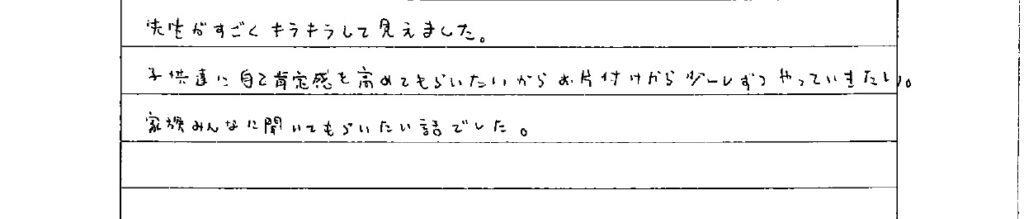 先生がすごくキラキラして見えました。
子供達に自己肯定感を高めてもらいたいからお片付けから少しずつやっていきたい。
家族みんなに聞いてもらいたい話でした。